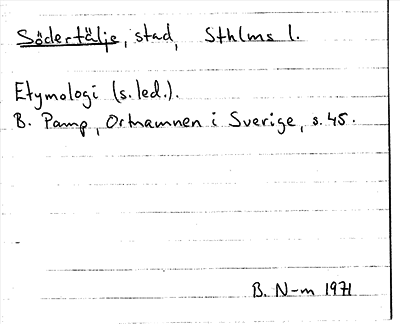 Södertälje, stad, Sthlms l.
Etymologi (s. led.).
B. Pamp, Ortnamnen i Sverige, s. 45.
B. N-m 1971